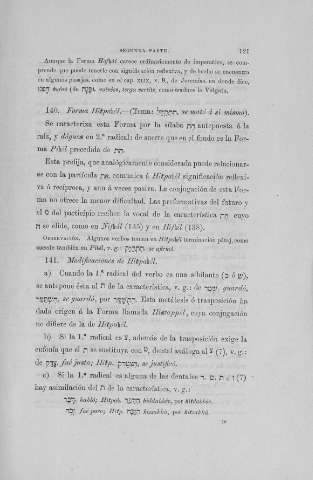 SEGUNDA PARTE. 121
Aunque la Forma Hofhál carece ordinariamente de imperativo, se comprende que puede tenerle con significación reflexiva, y de hecho se encuentra
en algunos pasajes, como en el cap.
140. Forma Hitpahél.—(Tema: se mató á sí mismo).
Se caracteriza esta Forma por la sílaba הת antepuesta á la
raíz, y dáguex en 2.ª radical: de suerte que en el fondo es la Forma Pihél precedida de הת.
Esta prefija, que analógicamente considerada puede relacionarse con la partícula את, comunica á Hitpahél significación reflexiva ó recíproca, y aun á veces pasiva. La conjugación de esta Forma no ofrece la menor dificultad. Las preformativas del futuro y
el מ del participio reciben la vocal de la característica הת cuyo
ה se elide, como en Nifhál (135) y en Hifhil (138).
OBSERVACIÓN. Algunos verbos toman en Hitpahél terminación pátaj, como
sucede también en Pihél, v. g.: se afirmó.
141. Modificaciones de Hitpahél.
a) Cuando la 1.ª radical del verbo es una sibilante (ס ó ש),
se antepone ésta al ת de la característica, v. g.: de שמר, guardó,
השתמר, se guardó, por התשמר. Esta metátesis ó trasposición ha
dado origen á la Forma llamada Histappél, cuya conjugación
no difiere de la de Hitpahél.
b) Si la 1.ª radical es צ, además de la trasposición exige la
eufonía que el ת se sustituya con ט, dental análoga al צ (7), v. g.:
de צדק, fué justo; Hitp. הצטדק, se justificó.
c) Si la 1.ª radical es alguna de las dentales ד, ט, ת (7)
hay asimilación del ת de la característica, v. g.:
דבר, habló; Hitpah. הדבר hiddabbér, por hitdabbér.
זכה fué puro; Hitp. הזכה hizzakká, por hitzakká.